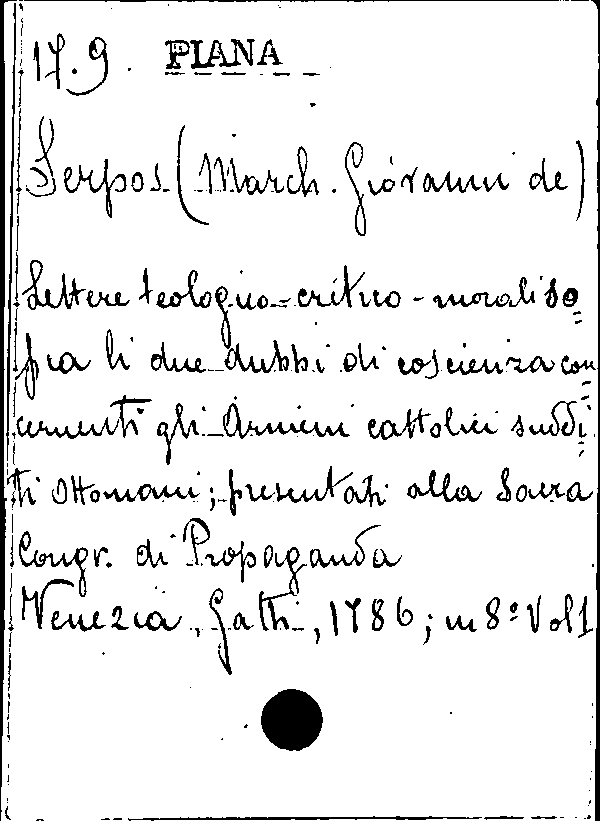 17.9. PIANA
Serpos (March. Giovanni de)
Lettere teologico-critico-morali so=
pra li due dubbi di coscienza con=
cernenti gli Armeni cattolici suddi=
ti Ottomani; presentati alla Sacra
Congr. di Propaganda
Venezia, Gatti, 1786; in 8º Vol 1